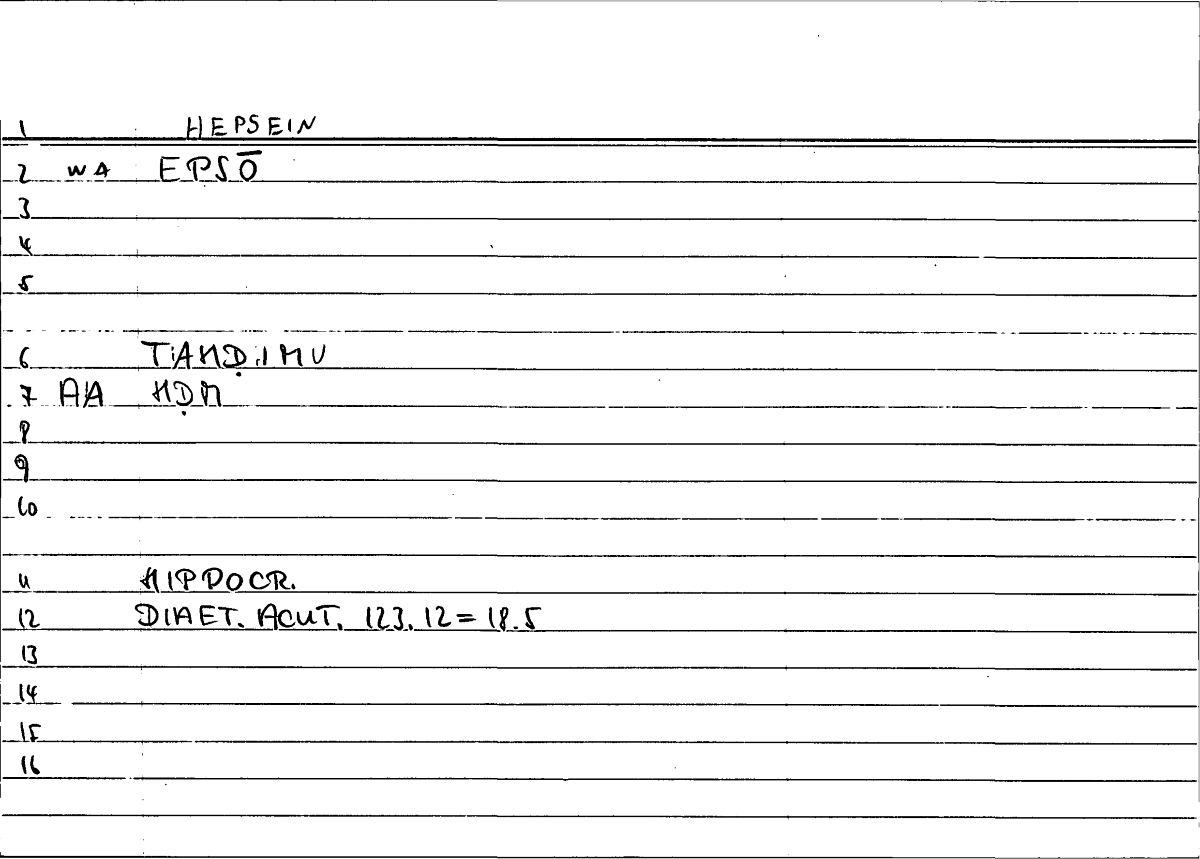 1 HEPSEIN
2 WA EPSŌ
3
4
5
6 TAHḌIMU
7 AA HḌM
8
9
10
11 HIPPOCR.
12 DIAET. ACUT. 123.12 = 18.5
13
14
15
16